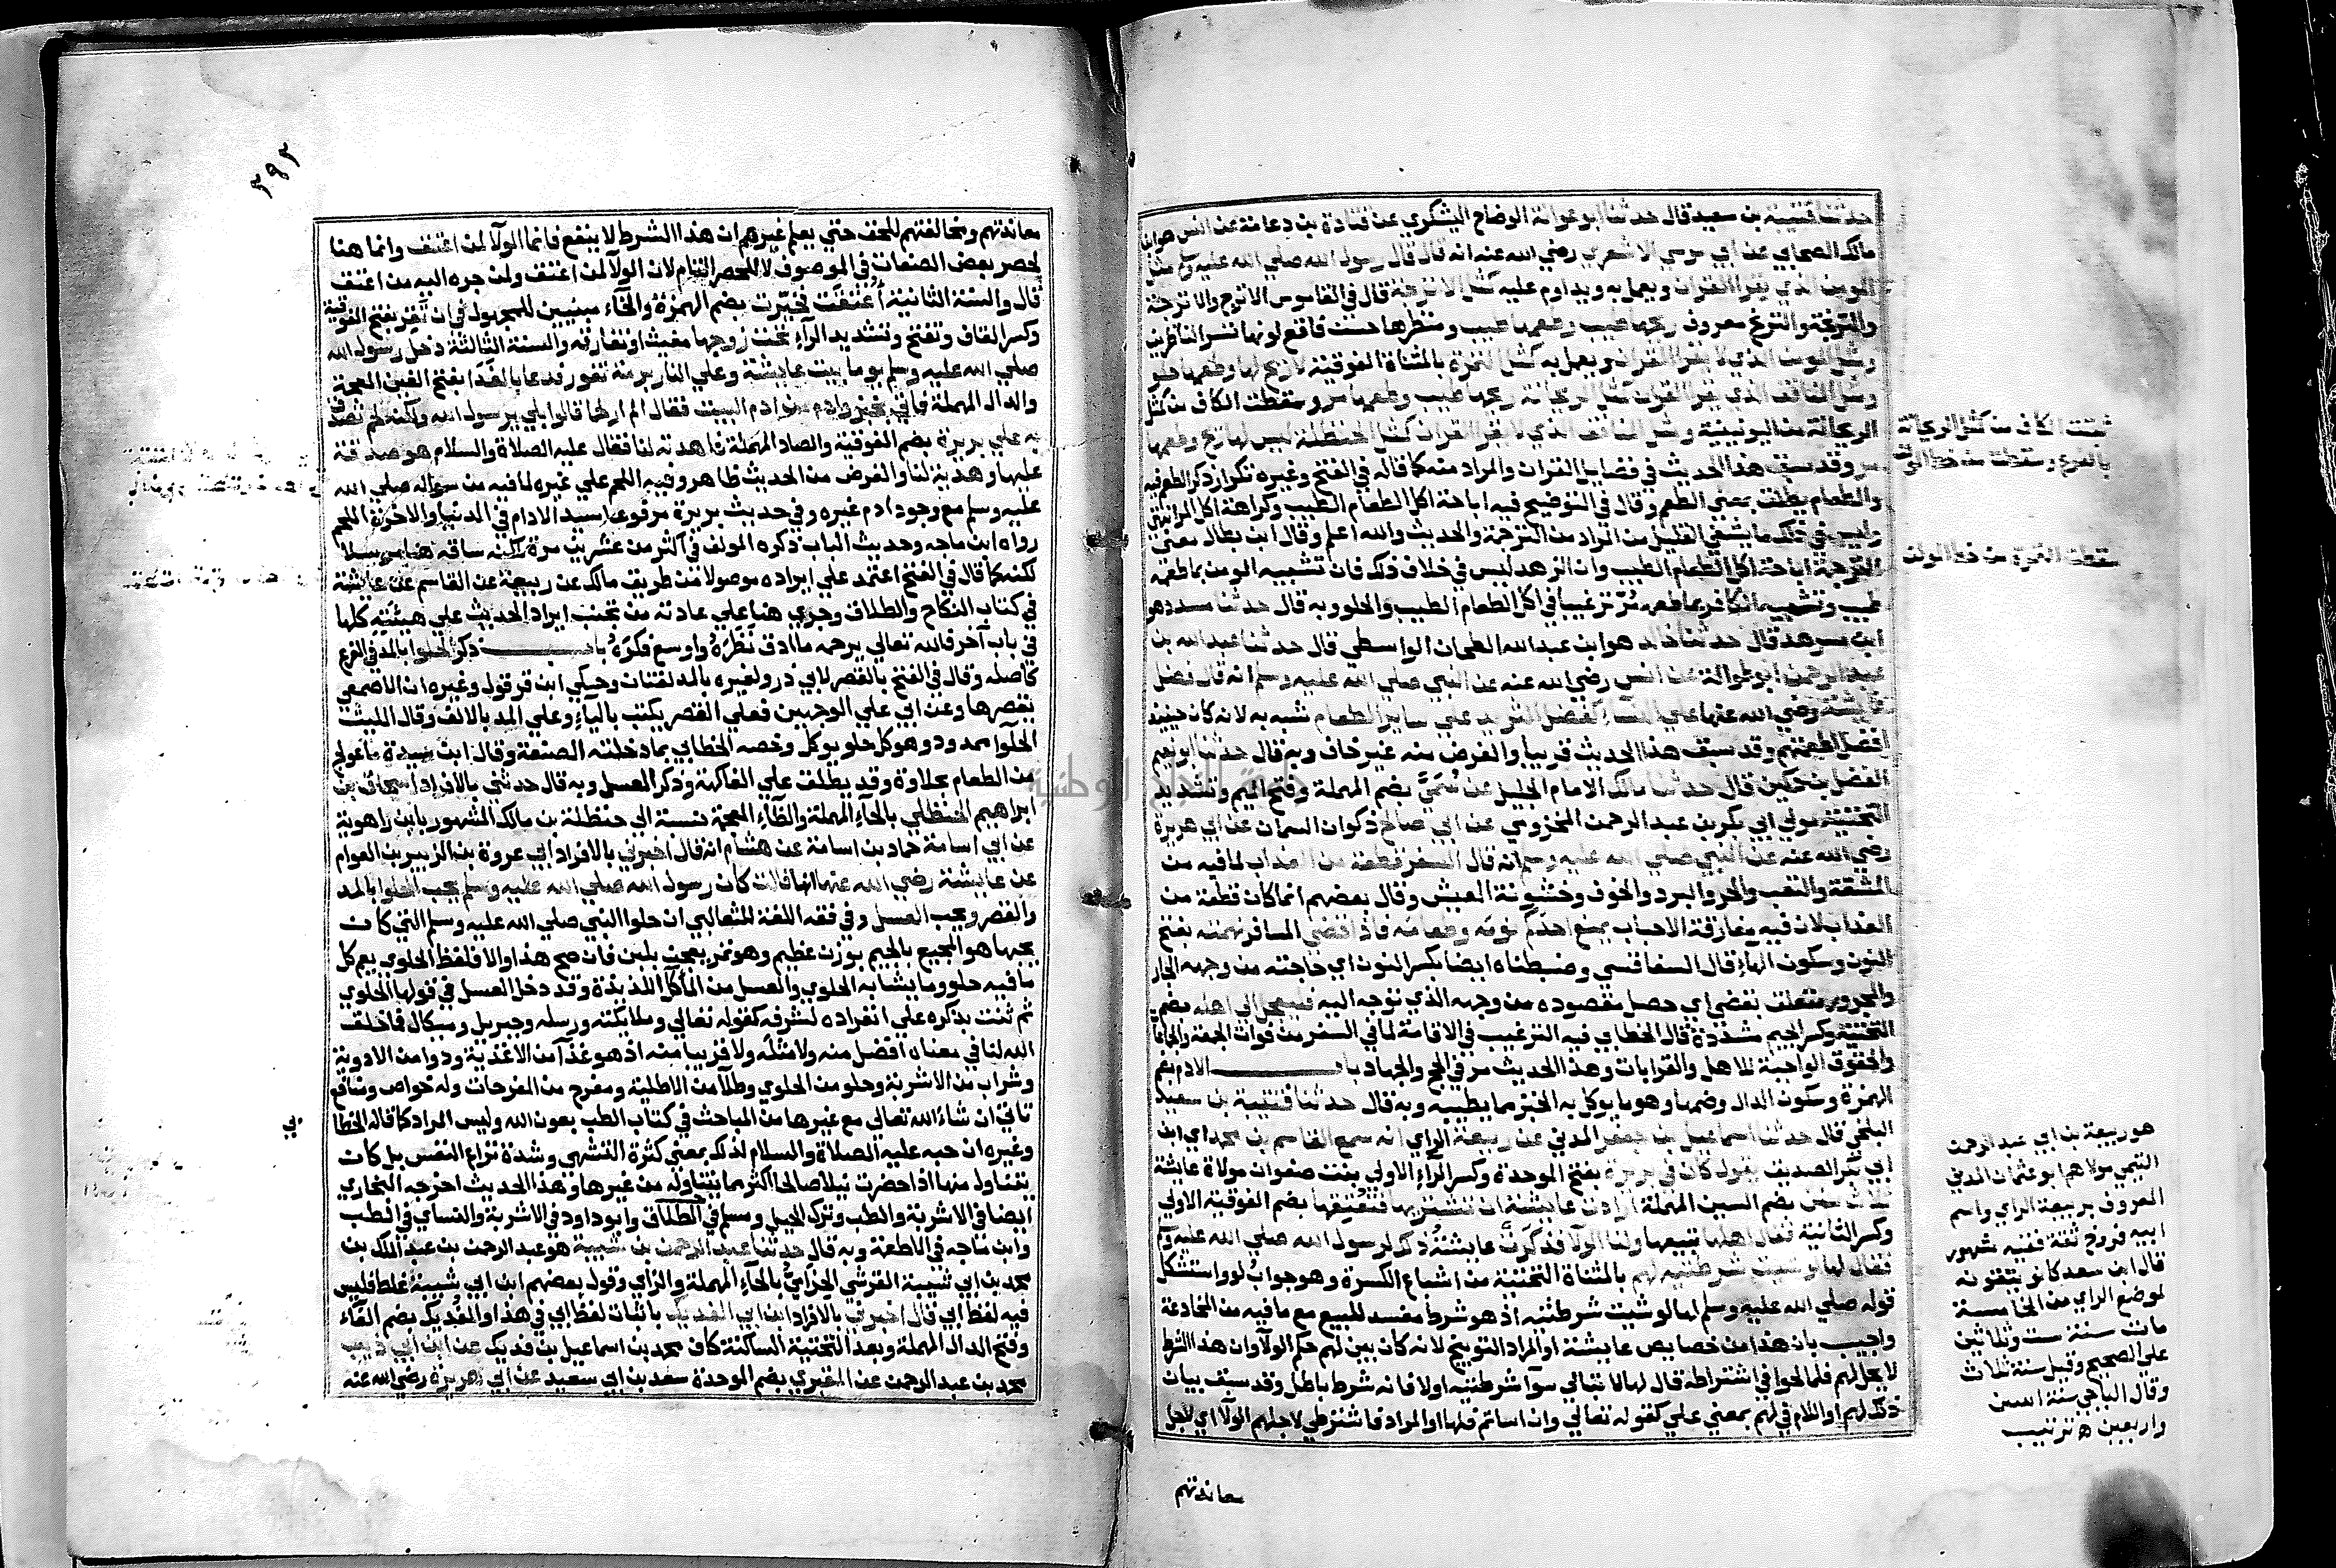 حدثنا قتيبة بن سعيد قال حدثنا ابو عوانة الوضاح اليشكري عن قتادة بن دعامة عن انس هو ابن
مالك الصحابي عن ابي موسي الاشعري رضي الله عنه انه قال قال رسول الله صلي الله عليه وسلم مثل
المومن الذي يقرا القران ويعمل به ويداوم عليه كمثل الاترجة قال في القاموس الاترج والاترجة
والترنجة والترنج معروف ريحها طيب وطعمها طيب ومنظرها حسن فاقع لونها تسر الناظرين
ومثل المومن الذي لا يقرا القران ويعمل به كمثل التمرة بالمثناة الفوقية لا ريح لها وطعمها حلو
ومثل المنافق الذي يقرا القران مثل الريحانة ريحها طيب وطعمها مر وسقطت الكاف من كمثل
الريحانة من اليونينية ومثل المنافق الذي لا يقرا القران كمثل الحنظلة ليس لها ريح وطعمها
مر وقد سبق هذا الحديث في فضايل القران والمراد منه كما قاله في الفتح وغيره تكرار ذكر الطعم فيه
والطعام يطلق بمعني الطعم وقال في التوضيح فيه اباحة اكل الطعام الطيب وكراهة اكل المر انتهي
وليس في ذلك ما يشفي الغليل من المراد من الترجمة والحديث والله اعلم وقال ابن بطال معني
الترجمة اباحة اكل الطعام الطيب وان الزهد ليس في خلاف ذلك فان تشبيه المومن بما طعمه
طيب وتشبيه الكافر بما طعمه مر ترغيبا في اكل الطعام الطيب والحلو وبه قال حدثنا مسدد هو
ابن مسرهد قال حدثنا خالد هو ابن عبد الله الطحان الواسطي قال حدثنا عبد الله بن
عبد الرحمن ابو طوالة عن انس رضي الله عنه عن النبي صلي الله عليه وسلم انه قال فضل
عايشة رضي الله عنها علي النساء كفضل الثريد علي ساير الطعام شبه به لانه كان حينيذ
افضل اطعمتهم وقد سبق هذا الحديث قريبا والغرض منه غير خاف وبه قال حدثنا ابو نعيم
الفضل بن دكين قال حدثنا مالك الامام الجليل عن سمي بضم المهملة وفتح الميم وتشديد
التحتية مولي ابي بكر بن عبد الرحمن المخزومي عن ابي صالح ذكوان السمان عن ابي هريرة
رضي الله عنه عن النبي صلي الله عليه وسلم انه قال السفر قطعة من العذاب لما فيه من
المشقة والتعب والحر والبرد والخوف وخشونة العيش وقال بعضهم انما كان قطعة من
العذاب لان فيه مفارقة الاحباب يمنع احدكم نومه وطعامه فاذا قضي المسافر نهمته بفتح
النون وسكون الهاء قال السفاقسي وضبطناه ايضا بكسر النون اي حاجته من وجهه الجار
والمجرور متعلق بقضي اي حصل مقصوده من وجهه الذي توجه اليه فليعجل الي اهله بضم
التحتية وكسر الجيم مشددة قال الخطابي فيه الترغيب في الاقامة لما في السفر من فوات الجمعة والجماعات
والحقوق الواجبة للاهل والقرابات وهذا الحديث مر في الحج والجهاد باب الادم بضم
الهمزة وسكون الدال وضمها وهو ما يوكل به الخبز مما يطيبه وبه قال حدثنا قتيبة بن سعيد
البلخي قال حدثنا اسماعيل بن جعفر المدني عن ربيعة الراي انه سمع القاسم بن محمد اي ابن
ابي بكر الصديق يقول كان في بريرة بفتح الموحدة وكسر الراء الاولي بنت صفوان مولاة عايشة
ثلاث سنن بضم السين المهملة ارادت عايشة ان تشتريها فتعتقها بضم الفوقية الاولي
وكسر الثانية فقال اهلها نبيعها ولنا الولا فذكرت عايشة ذلك لرسول الله صلي الله عليه وسلم
فقال لها لو شيت شرطتيه لهم بالمثناة التحتية من اشباع الكسرة وهو جواب لو واستشكل
قوله صلي الله عليه وسلم لها لو شيت شرطتيه اذ هو شرط مفسد للبيع مع ما فيه من المخادعة
واجيب بان هذا من خصايص عايشة او المراد التوبيخ لانه كان بين لهم حكم الولا وان هذا الشرط
لا يحل لهم فلما لحوا في اشتراطه قال لها لا تبالي سوا شرطتيه او لا فانه شرط باطل وقد سبق بيان
ذلك لهم او اللام في لهم بمعني علي كقوله تعالي وان اساتم فلها او المراد فاشترطي لاجلهم الولا اي لاجل
معاندتهم
ثبتت الكاف من كمثل الريحانة
بالفرع وسقطت من خط المولف
هو ربيعة بن ابي عبد الرحمن
التيمي مولاهم ابو عثمان المدني
المعروف بربيعة الراي واسم
ابيه فروخ ثقة فقيه مشهور
قال ابن سعد كانو يتقونه
لموضع الراي من الخامسة
مات سنة ست وثلاثين
علي الصحيح وقيل سنة ثلاث
وقال الباجي سنة اثنين
واربعين ه تقريب
٣٩٢
معاندتهم ومخالفتهم للحق حتي يعلم غيرهم ان هذا الشرط لا ينفع فانما الولا لمن اعتق وانما هنا
لحصر بعض الصفات في الموصوف لا للحصر التام لان الولا لمن اعتق ولمن جره اليه من اعتق
قال والسنة الثانية اعتقت فخيرت بضم الهمزة والخاء مبنيين للمجهول في ان تقر بفتح الفوقية
وكسر القاف وتفتح وتشديد الراء تحت زوجها مغيث او تفارقه والسنة الثالثة دخل رسول الله
صلي الله عليه وسلم يوما بيت عايشة وعلي النار برمة تفور فدعا بالغدا بفتح الغين المعجمة
والدال المهملة فاتي بخبز وادم من ادم البيت فقال الم ار لحما قالوا بلي يرسول الله ولكنه لحم تصدق
به علي بريرة بضم الفوقية والصاد المهملة فاهدته لنا فقال عليه الصلاة والسلام هو صدقة
عليها وهدية لنا والغرض من الحديث ظاهر وفيه اللحم علي غيره لما فيه من سواله صلي الله
عليه وسلم مع وجود ادم غيره وفي حديث بريرة مرفوعا سيد الادام في الدنيا والاخرة اللحم
رواه ابن ماجه وحديث الباب ذكره المولف في اكثر من عشرين مرة لكنه ساقه هنا مرسلا
لكنه كما قال في الفتح اعتمد علي ايراده موصولا من طريق مالك عن ربيعة عن القاسم عن عايشة
في كتاب النكاح والطلاق وجري هنا علي عادته من تجنب ايراد الحديث علي هيئته كلها
في باب آخر فالله تعالي يرحمه ما ادق نظره واوسع فكره باب ذكر الحلوا بالمد في الفرع
كاصله وقال في الفتح بالقصر لابي ذر ولغيره بالمد لغتان وحكي ابن قرقول وغيره ان الاصمعي
بقصرها وعن ابي علي الوجهين فعلي القصر يكتب بالياء وعلي المد بالالف وقال الليث
الحلوا ممدود وهو كل حلو يوكل وخصه الخطابي بما دخلته الصنعة وقال ابن سيدة ما عولج
من الطعام بحلاوة وقد يطلق علي الفاكهة وذكر العسل وبه قال حدثني بالافراد اسحاق بن
ابراهيم الحنظلي بالحاء المهملة والظاء المعجمة نسبة الي حنظلة بن مالك المشهور بابن راهوية
عن ابي اسامة حماد بن اسامة عن هشام انه قال اخبرني بالافراد ابي عروة بن الزبير بن العوام
عن عايشة رضي الله عنها انها قالت كان رسول الله صلي الله عليه وسلم يحب الحلوا بالمد
والقصر ويحب العسل وفي فقه اللغة للثعالبي ان حلوا النبي صلي الله عليه وسلم التي كان
يحبها هو المجيع بالجيم بوزن عظيم وهو تمر يعجن بلبن فان صح هذا والا فلفظ الحلوي يعم كل
ما فيه حلو وما يشابه الحلوي والعسل من المآكل اللذيذة وقد دخل العسل في قولها الحلوي
ثم ثنت بذكره علي انفراده لشرفه كقوله تعالي وملايكته ورسله وجبريل وميكال فما خلق
الله لنا في معناه افضل منه ولا مثله ولا قريبا منه اذ هو غذا من الاغذية ودوا من الادوية
وشراب من الاشربة وحلو من الحلوي وطلا من الاطلية ومفرح من المفرحات وله خواص ومنافع
تاتي ان شاء الله تعالي مع غيرها من المباحث في كتاب الطب بعون الله وليس المراد كما قاله الخطا
بي
وغيره ان حبه عليه الصلاة والسلام لذلك بمعني كثرة التشهي وشدة نزاع النفس بل كان
يتناول منها اذا حضرت نيلا صالحا اكثر مما يتناوله من غيرها وهذا الحديث اخرجه البخاري
ايضا في الاشربة والطب وترك الحيل ومسلم في الطلاق وابو داود في الاشربة والنساي في الطب
وابن ماجه في الاطعمة وبه قال حدثنا عبد الرحمن بن شيبة هو عبد الرحمن بن عبد الملك بن
محمد بن ابي شيبة القرشي الحزامي بالحاء المهملة والزاي وقول بعضهم ابن ابي شيبة غلط فليس
فيه لفظ ابي قال اخبرني بالافراد ابن ابي الفديك باثبات لفظ ابي في هذا والفديك بضم الفاء
وفتح الدال المهملة وبعد التحتية الساكنة كاف محمد بن اسماعيل بن فديك عن ابن ابي ذيب
محمد بن عبد الرحمن عن المقبري بضم الموحدة سعد بن ابي سعيد عن ابي هريرة رضي الله عنه